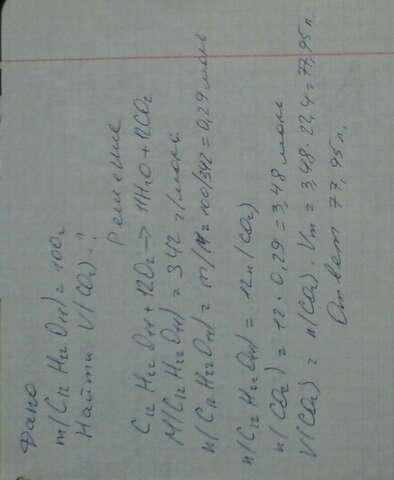 Дано
m(C12H22O11) = 100г
Найти V(CO2) - ?
Решение
C12H22O11 + 12O2 → 11H2O + 12CO2
M(C12H22O11) = 342 г/моль
n(C12H22O11) = m/M = 100/342 = 0,29 моль
n(C12H22O11) = 12n(CO2)
n(CO2) = 12 · 0,29 = 3,48 моль
V(CO2) = n(CO2) · Vm = 3,48 · 22,4 = 77,95 л.
Ответ 77,95 л.